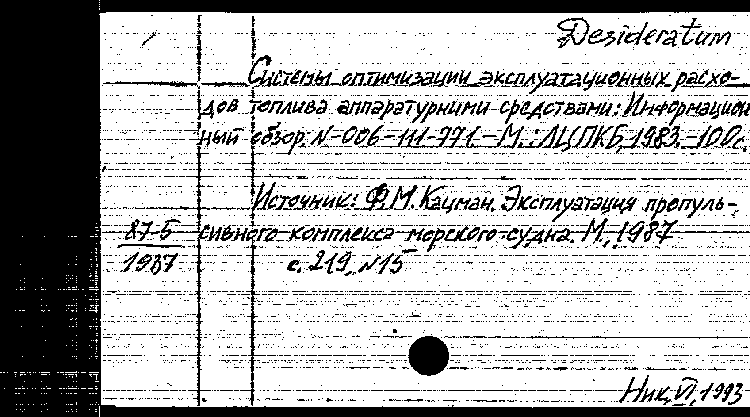 Desideratum
Системы оптимизации эксплуатационных расхо-
дов топлива аппаратурными средствами: Информацион
ный обзор. N-006-111-771. - М.: ЛЦПКБ, 1983. - 100с.
Источник: Ф.М. Кацман. Эксплуатация пропуль-
87-5 сивного комплекса морского судна. М., 1987
1987 с. 219, N15
Ник, VI, 1993